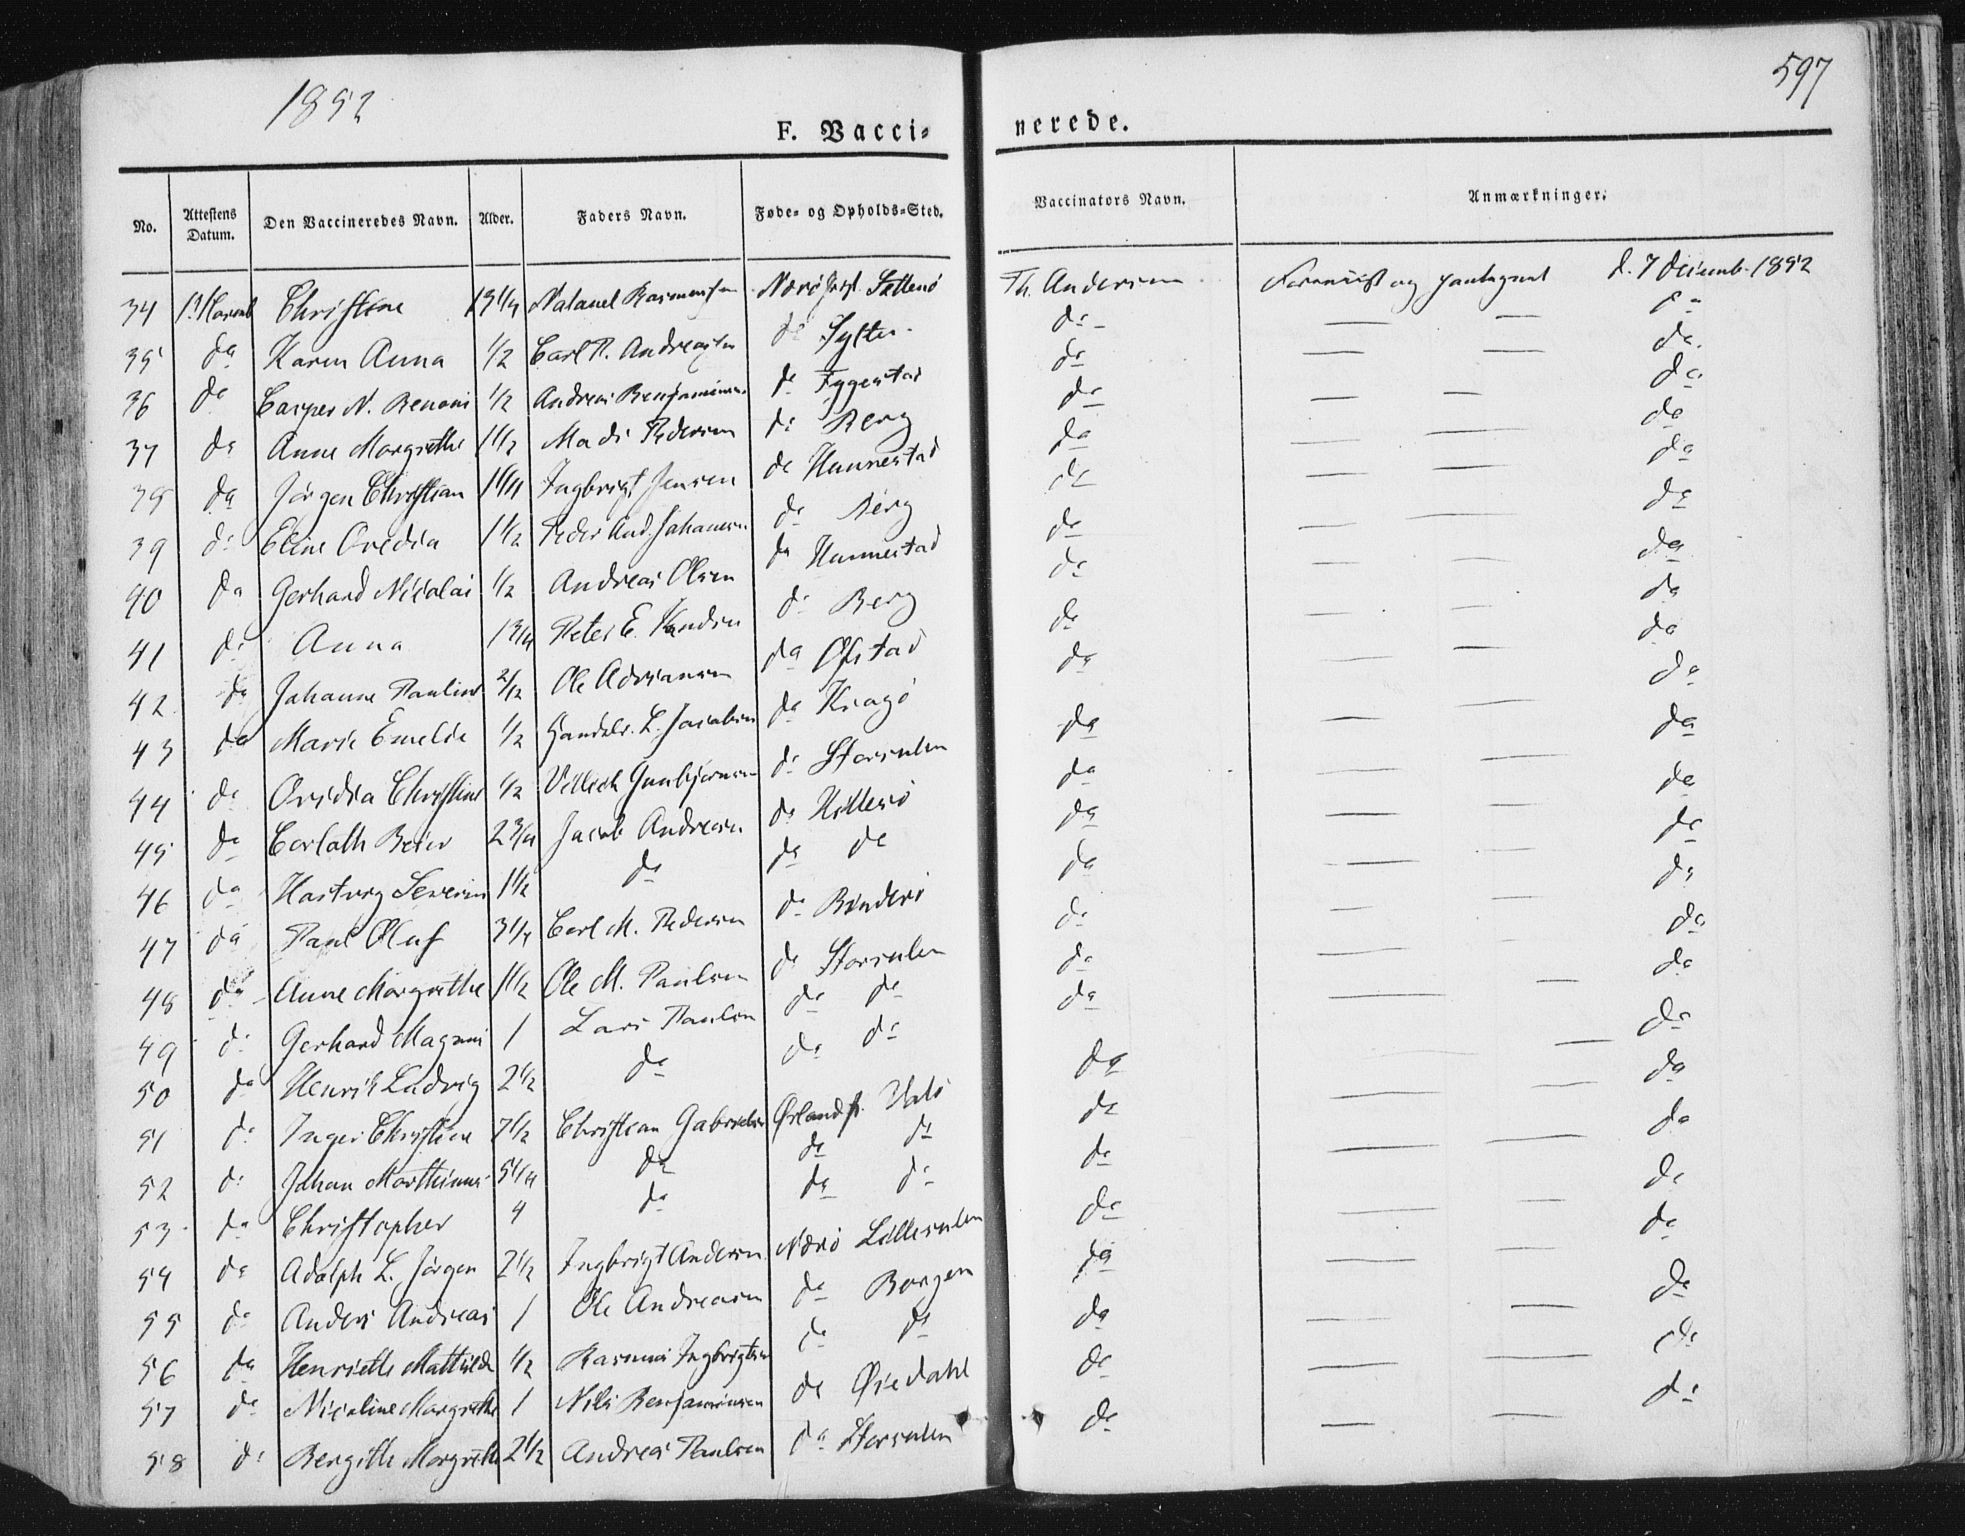 1852
597
F. Vacci=
nerede.
No. Attestens Datum. Den Vaccineredes Navn. Alder. Faders Navn. Føde= og Opholds=Sted. Vaccinators Navn. Anmærkninger.
34 Christine Natanael Rasmussen Nærö Th. Andersen og d. 7 Decemb. 1852
35 do Karen Anna 1/2 Carl P. Andreassen do do — — do
36 do Casper N. Benoni 1/2 Andreas Benjaminsen do Eggestad do — — do
37 do Anne Margrethe 1 1/2 Mads Pedersen do Berg do — — do
38 do Jörgen Christian 1 1/4 Ingbrigt Jensen do Hunnestad do — — do
39 do Eline Ovedia 1 1/2 Peder And. Johansen do Berg do — — do
40 do Gerhard Nicolai 1/2 Andreas Olsen do Hunnestad do — — do
41 do Anna 1 3/4 Peter E. do Berg do — — do
42 do Johanne Pauline 2/12 Ole Adriansen do Ofstad do — — do
43 do Marie Emelie 1/2 Handelsm. L. Jacobsen do Kragö do — — do
44 do Ovidia Christine 1/2 Villich Gunbjörnsen do Storsulen do — — do
45 do 2 3/4 Jacob Andreasen do Hillesö do — — do
46 do Hartvig Severin 1 1/2 do do do do — — do
47 do Paul Oluf 3 1/4 Carl M. Pedersen do Bonderö do — — do
48 do Anne Margrethe 1 1/2 Ole M. Paulsen do Storsulen do — — do
49 do Gerhard Magnus 1 Lars Paulsen do do do — — do
50 do Henrik Ludvig 2 1/2 do do do do — — do
51 do Inger Christine 7 1/2 Christian Gabrielsen do — — do
52 do Johan Marthinus 5 1/4 do do do do — — do
53 do Christopher 4 do do do do — — do
54 do Adolph L. Jörgen 2 1/2 Ingbrigt Andersen Nærö Lillesulen do — — do
55 do Anders Andreas 1 Ole Andreasen do Borgen do — — do
56 do Henriette Mathilde 1/2 Rasmus Ingbrigtsen do do do — — do
57 do Nicoline Margrethe 1 Nils Benjaminsen do Øiedahl do — — do
58 do Bergitte Margrethe 2 1/2 Andreas Paulsen do Storsulen do — — do